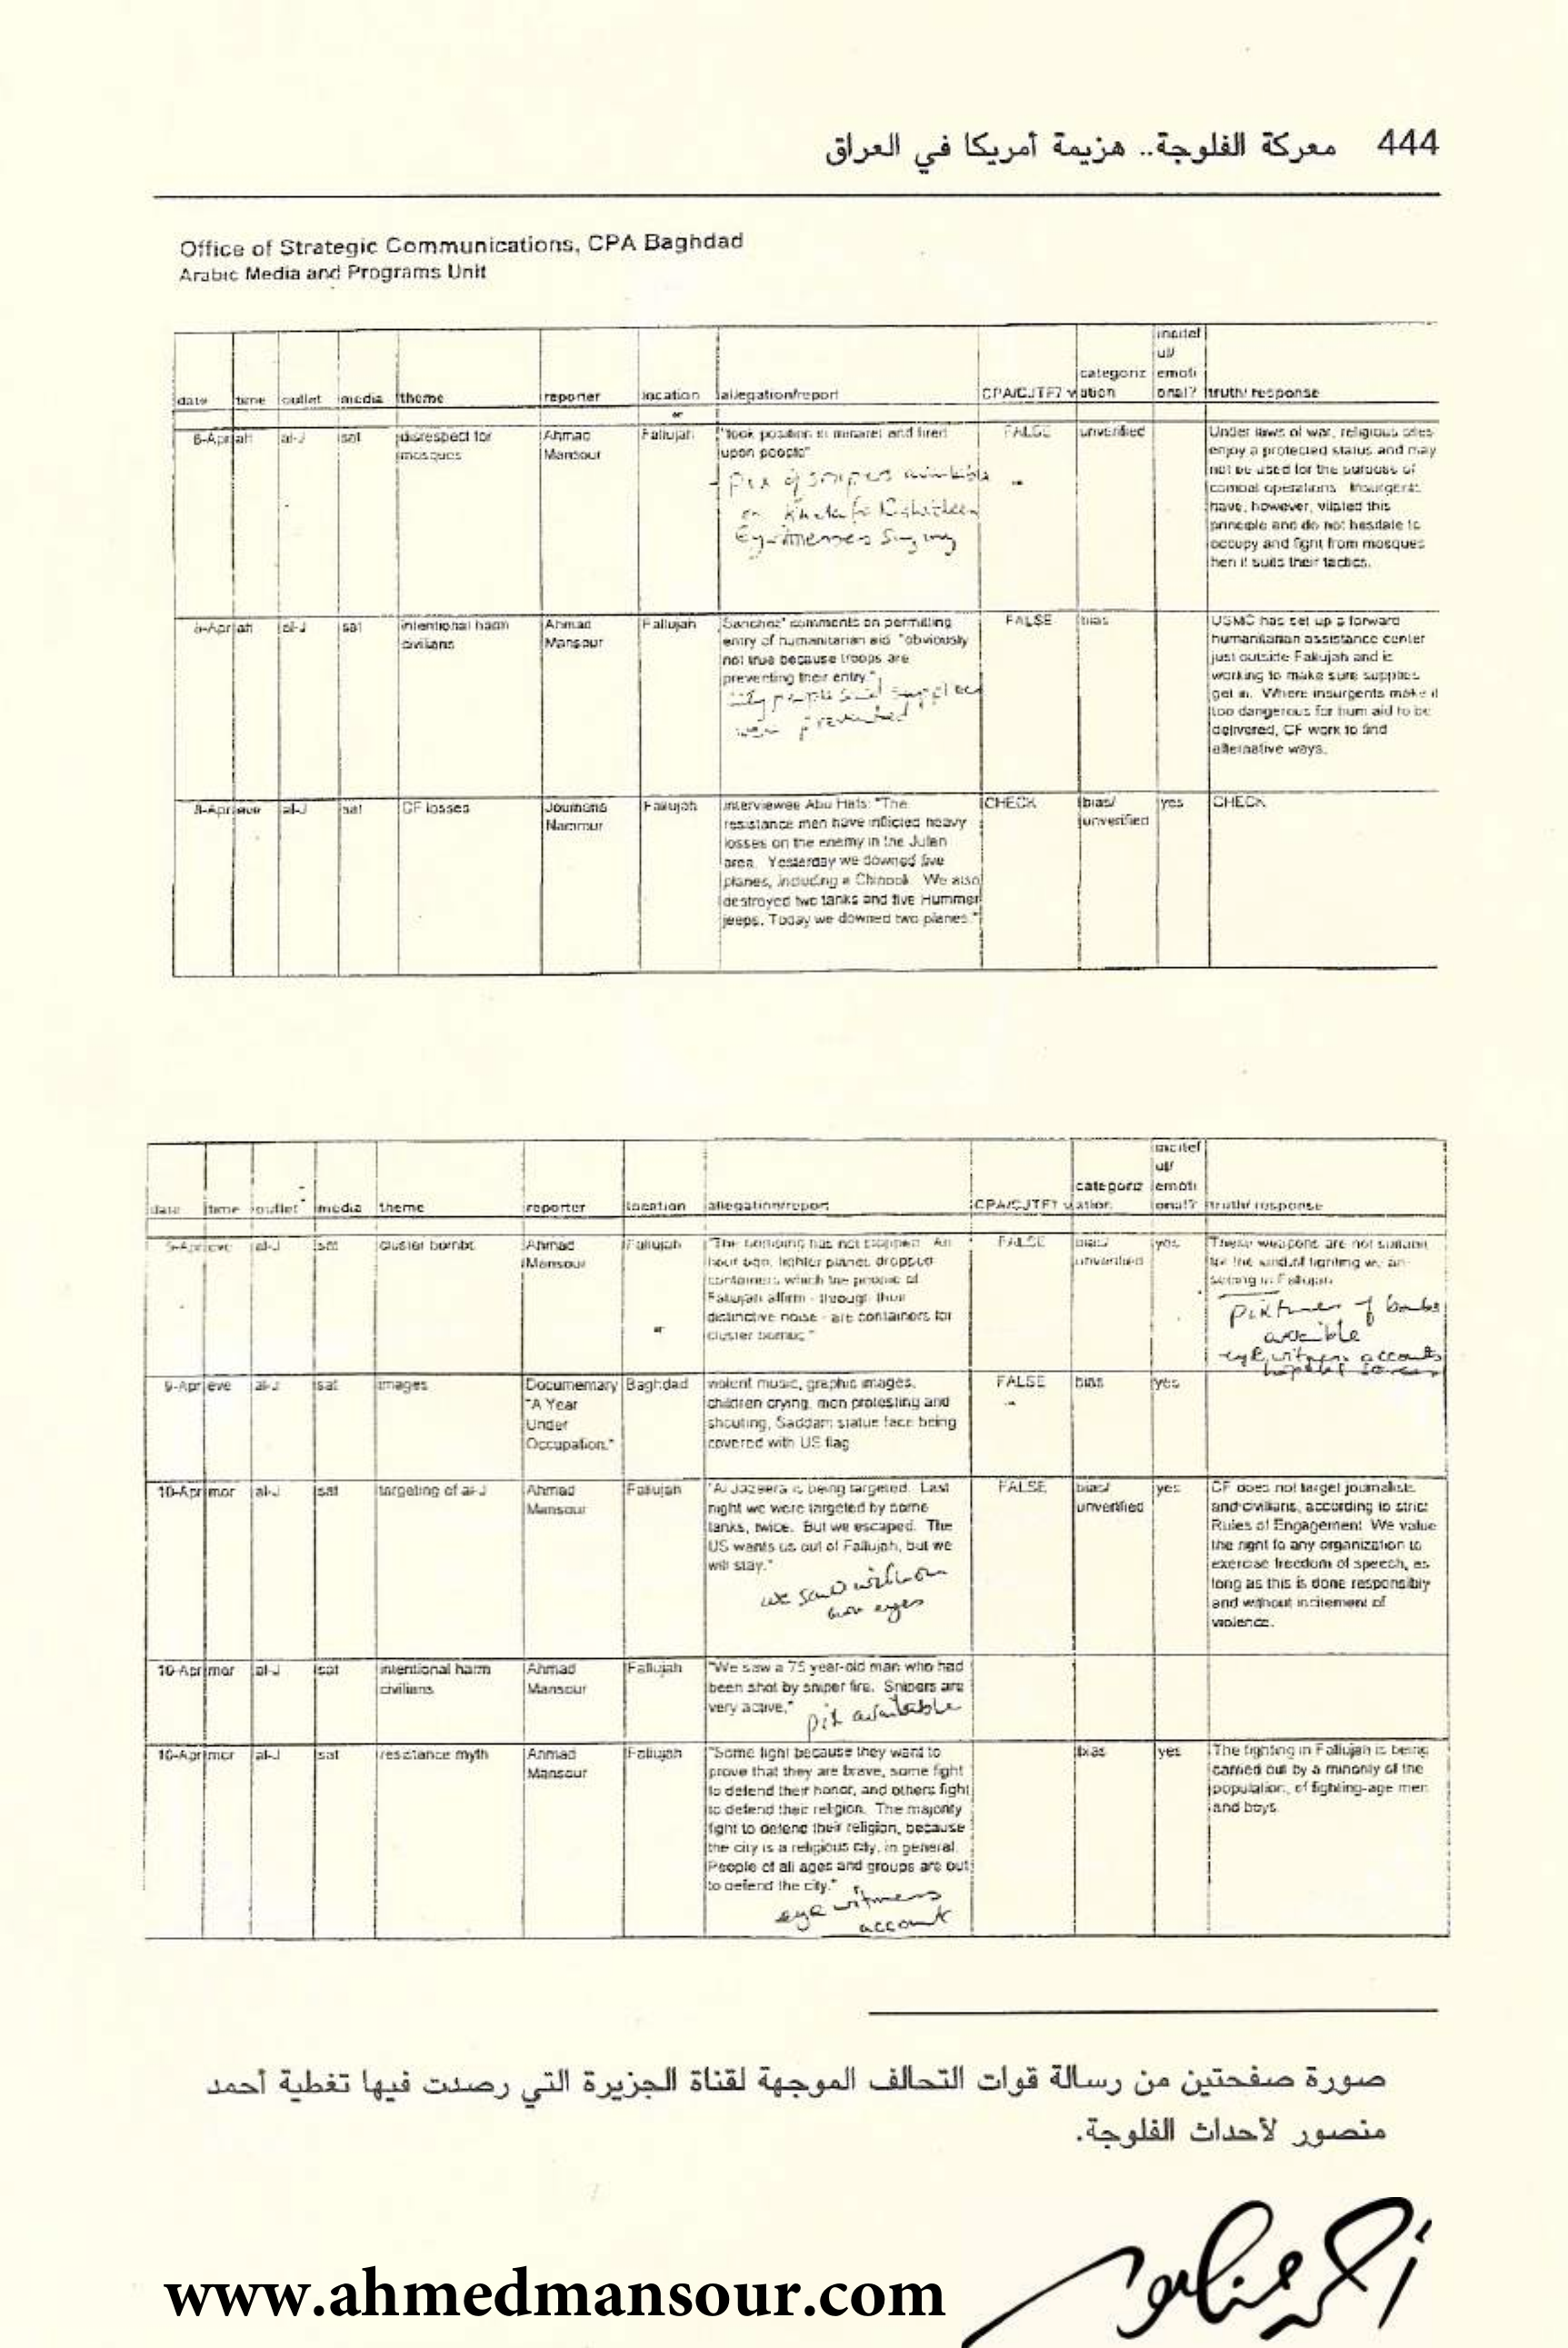 444 معركة الفلوجة.. هزيمة أمريكا في العراق
Office of Strategic Communications, CPA Baghdad
Arabic Media and Programs Unit
date time outlet media theme reporter location allegation/report CPA/CJTF7 v categoriz ation incitef ul/ emoti onal? truth/ response
al-J sat disrespect for mosques Ahmad Mansour Fallujah "took position in minaret and fired upon people" FALSE unverified Under laws of war, religious sites enjoy a protected status and may not be used for the purpose of combat operations. Insurgents have, however, vilated this principle and do not hesitate to occupy and fight from mosques hen it suits their tactics.
Eyewitnesses Saying
al-J sat intentional harm civilians Ahmad Mansour Fallujah Sanchez' comments on permitting entry of humanitarian aid "obviously not true because troops are preventing their entry." FALSE bias USMC has set up a forward humanitarian assistance center just outside Fallujah and is working to make sure supplies get in. Where insurgents make it too dangerous for hum aid to be delivered, CF work to find alternative ways.
people said supplies were prevented
eve al-J sat CF losses Joumana Nammour Fallujah interviewee Abu Hafs: "The resistance men have inflicted heavy losses on the enemy in the Julan area. Yesterday we downed five planes, including a Chinook. We also destroyed two tanks and five Hummer jeeps. Today we downed two planes." CHECK bias/ unverified yes CHECK
date time outlet media theme reporter location allegation/report CPA/CJTF7 v categoriz ation incitef ul/ emoti onal? truth/ response
eve al-J sat cluster bombs Ahmad Mansour Fallujah "The bombing has not stopped. An hour ago, fighter planes dropped containers which the people of Fallujah affirm - through their distinctive noise - are containers for cluster bombs." FALSE bias/ unverified yes These weapons are not suitable for the kind of fighting we are seeing in Fallujah
of bombs
eye witness accounts
9-Apr eve al-J sat images Documentary "A Year Under Occupation." Baghdad violent music, graphic images, children crying, men protesting and shouting, Saddam statue face being covered with US flag FALSE bias yes
10-Apr mor al-J sat targeting of al-J Ahmad Mansour Fallujah "Al Jazeera is being targeted. Last night we were targeted by some tanks, twice. But we escaped. The US wants us out of Fallujah, but we will stay." FALSE bias/ unverified yes CF does not target journalists and civilians, according to strict Rules of Engagement. We value the right fo any organization to exercise freedom of speech, as long as this is done responsibly and without incitement of violence.
we saw with our
own eyes
10-Apr mor al-J sat intentional harm civilians Ahmad Mansour Fallujah "We saw a 75 year-old man who had been shot by sniper fire. Snipers are very active."
available
10-Apr mor al-J sat resistance myth Ahmad Mansour Fallujah "Some fight because they want to prove that they are brave, some fight to defend their honor, and others fight to defend their religion. The majority fight to defend their religion, because the city is a religious city, in general. People of all ages and groups are out to defend the city." bias yes The fighting in Fallujah is being carried out by a minority of the population, of fighting-age men and boys.
eye witness
account
صورة صفحتين من رسالة قوات التحالف الموجهة لقناة الجزيرة التي رصدت فيها تغطية أحمد
منصور لأحداث الفلوجة.
www.ahmedmansour.com